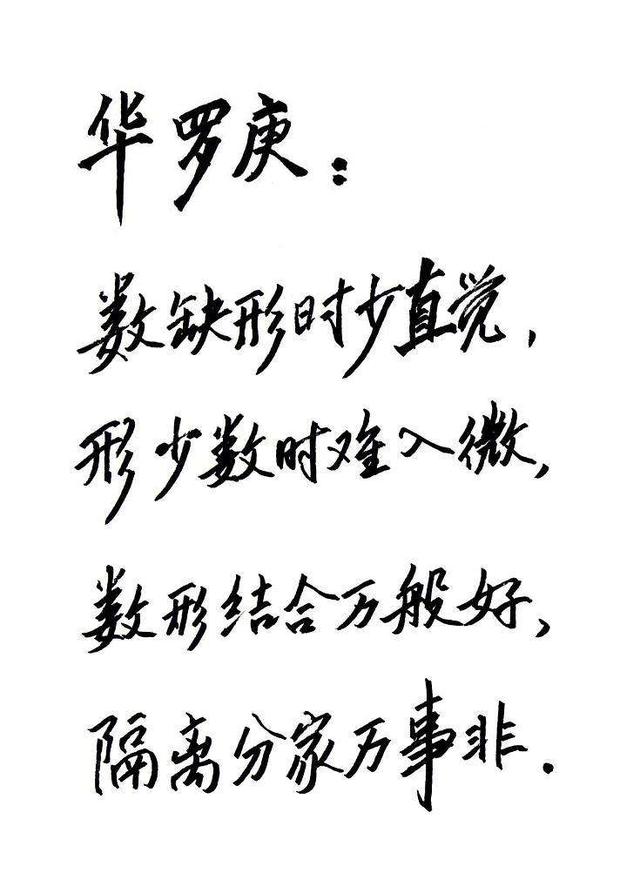 华罗庚：
数缺形时少直觉，
形少数时难入微，
数形结合万般好，
隔离分家万事非．